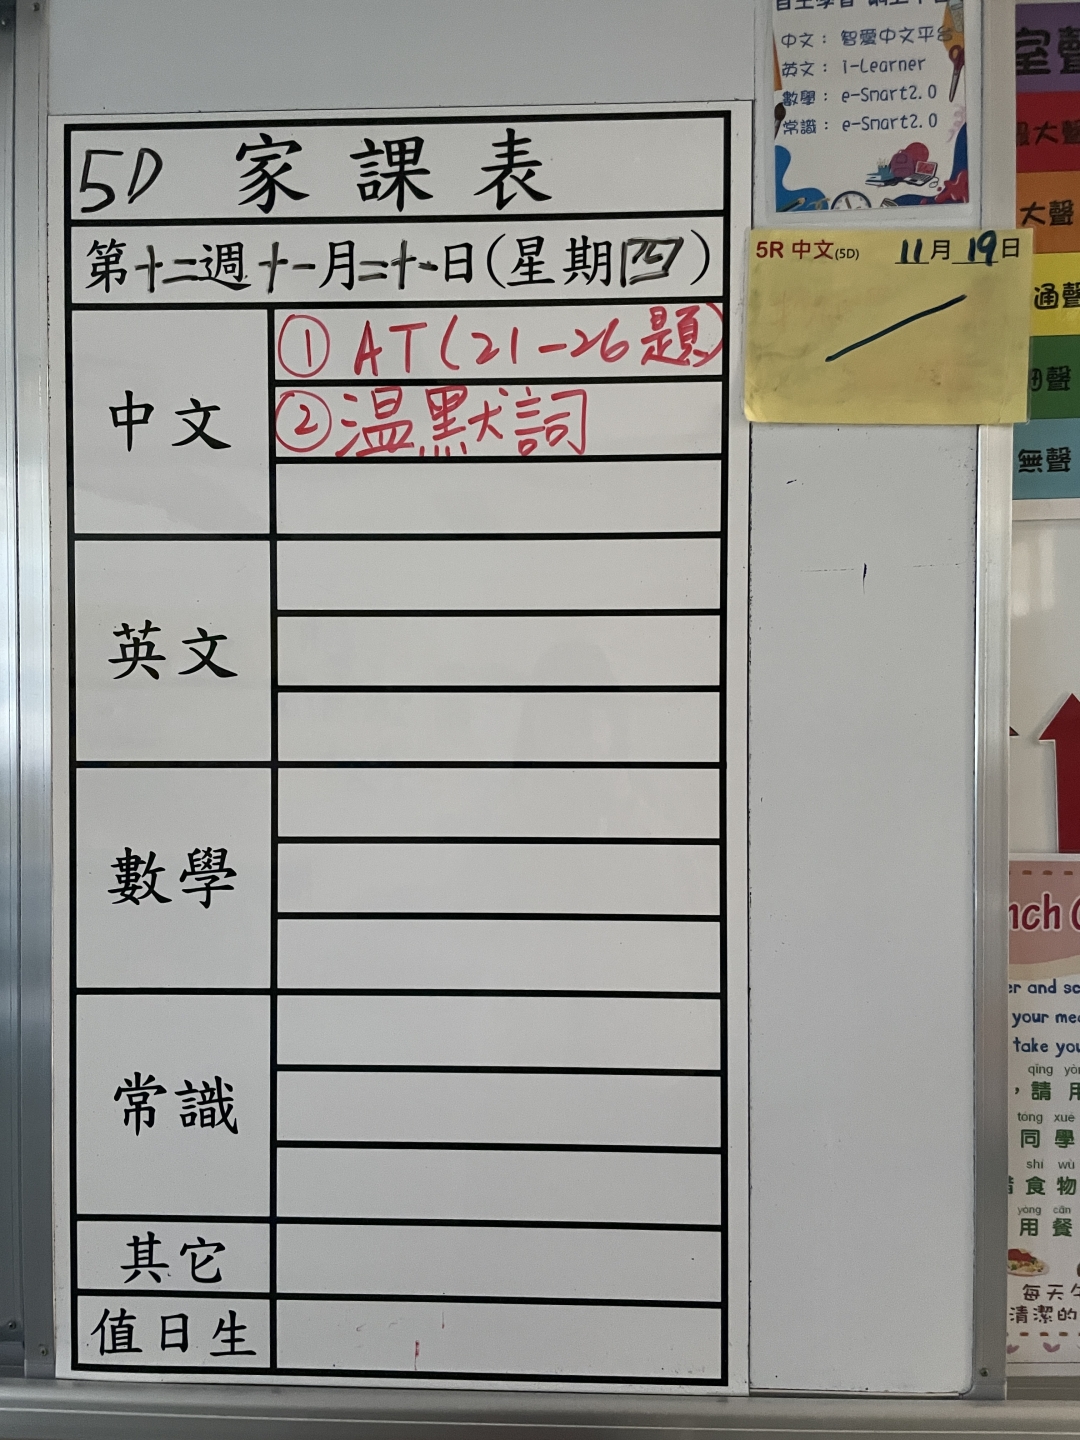 5D 家課表
第十二週十一月二十日(星期四)
中文
① AT(21-26題)
② 温默詞
英文
數學
常識
其它
值日生
中文：智愛中文平台
英文：i-Learner
數學：e-Smart2.0
常識：e-Smart2.0
5R 中文(5D) 11月19日
大聲
通聲
無聲
nch
er and sc
your mea
take you
qǐng yòn
，請用
tóng xué
同學
shí wù
食物
yòng cān
用餐
每天午
清潔的